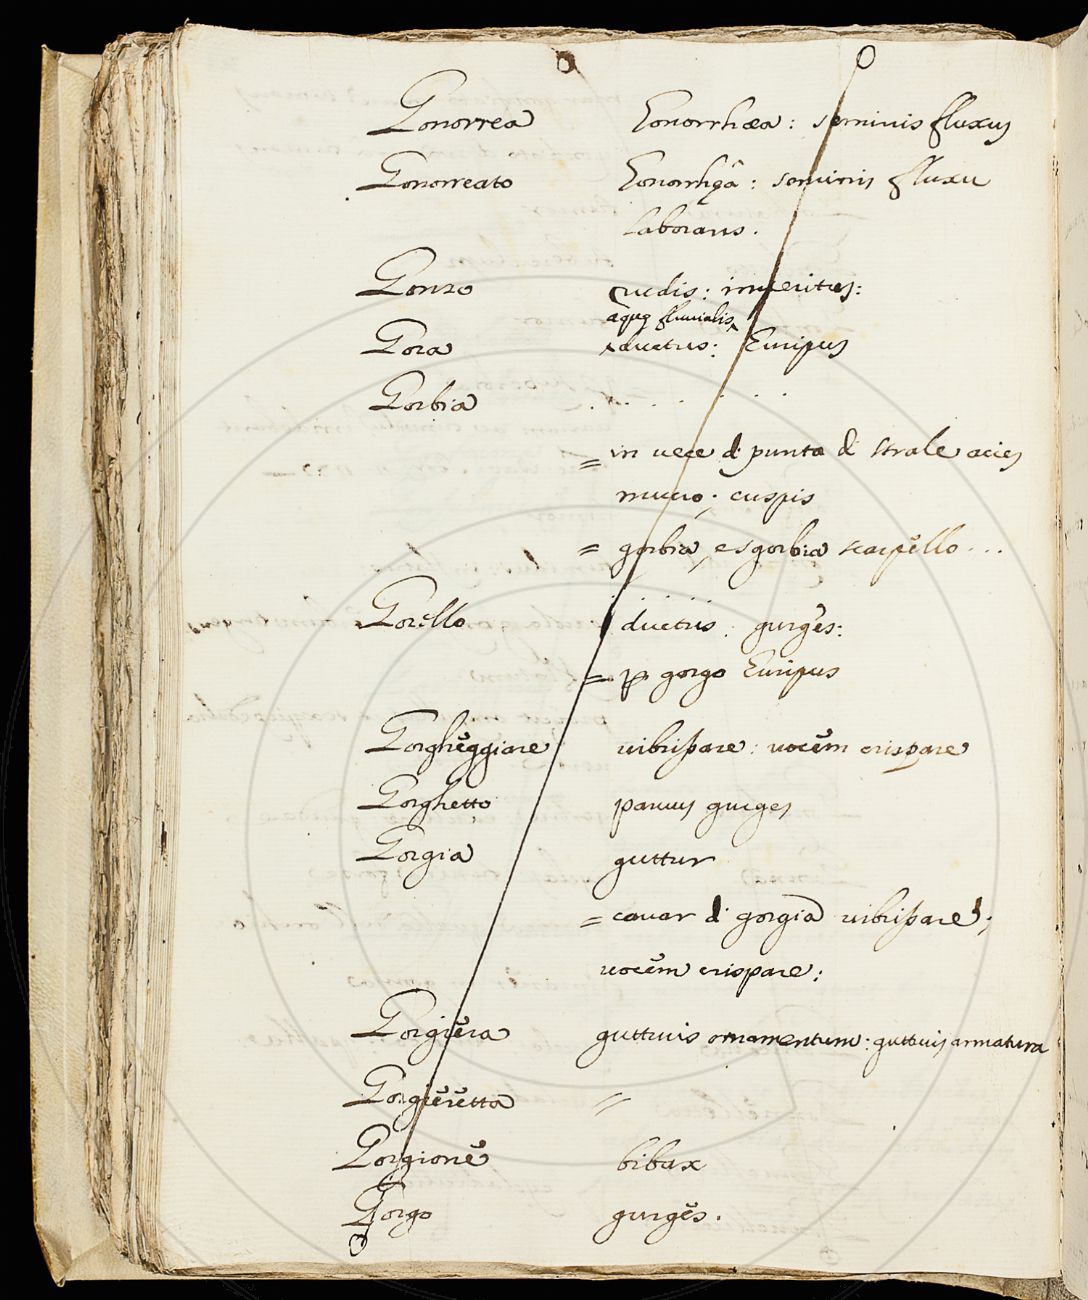 Gonorrea Gonorrhœa: seminis fluxus
Gonorreato Gonorrhęâ: seminis fluxu
laborans.
Gonzo rudis: imperitus:
aquę fluvialis
Gora ductus: Euripus
Gorbia . . . . . .
= in uece di punta di strale acies
mucro; cuspis
= gorbia, e sgorbia scarpello ...
Gorello ductus: gurges:
= p gorgo Euripus
Gorgheggiare uibrißare: uocem crispare
Gorghetto paruus gurges
Gorgia guttur
= cauar di gorgia uibrißare;
uocem crispare:
Gorgiera gutturis ornamentum: gutturis armatura
Gorgieretta =
Gorgione bibax
Gorgo gurges.